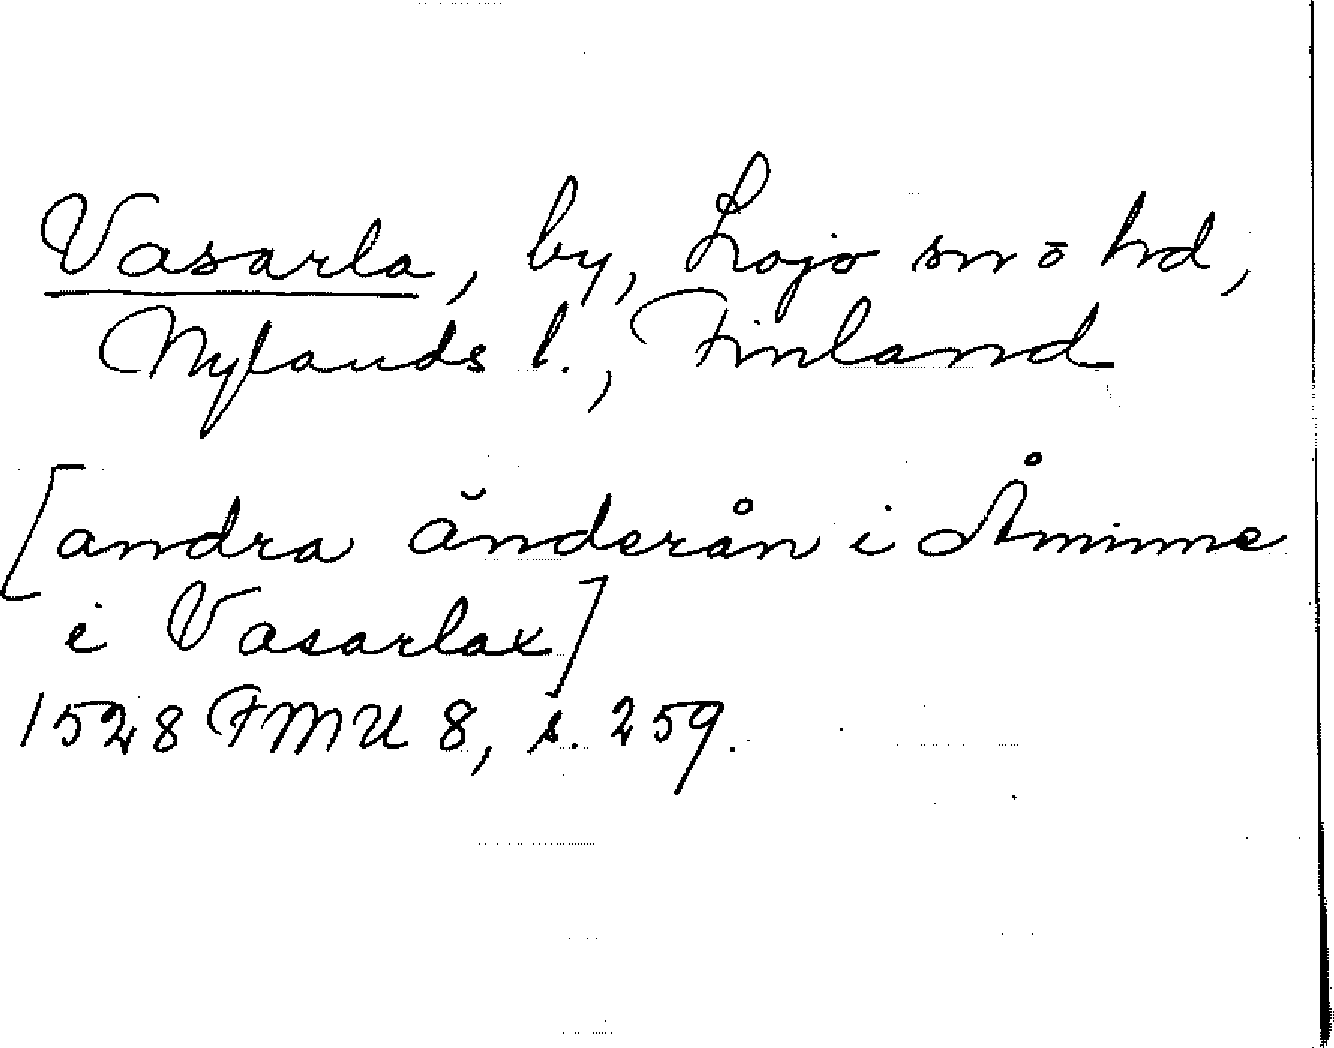 Vasarla, by, Lojo sn o hd,
Nylands l., Finland
[andra änderån i Åminne
i Vasarlax]
1528 FMU 8, s. 259.